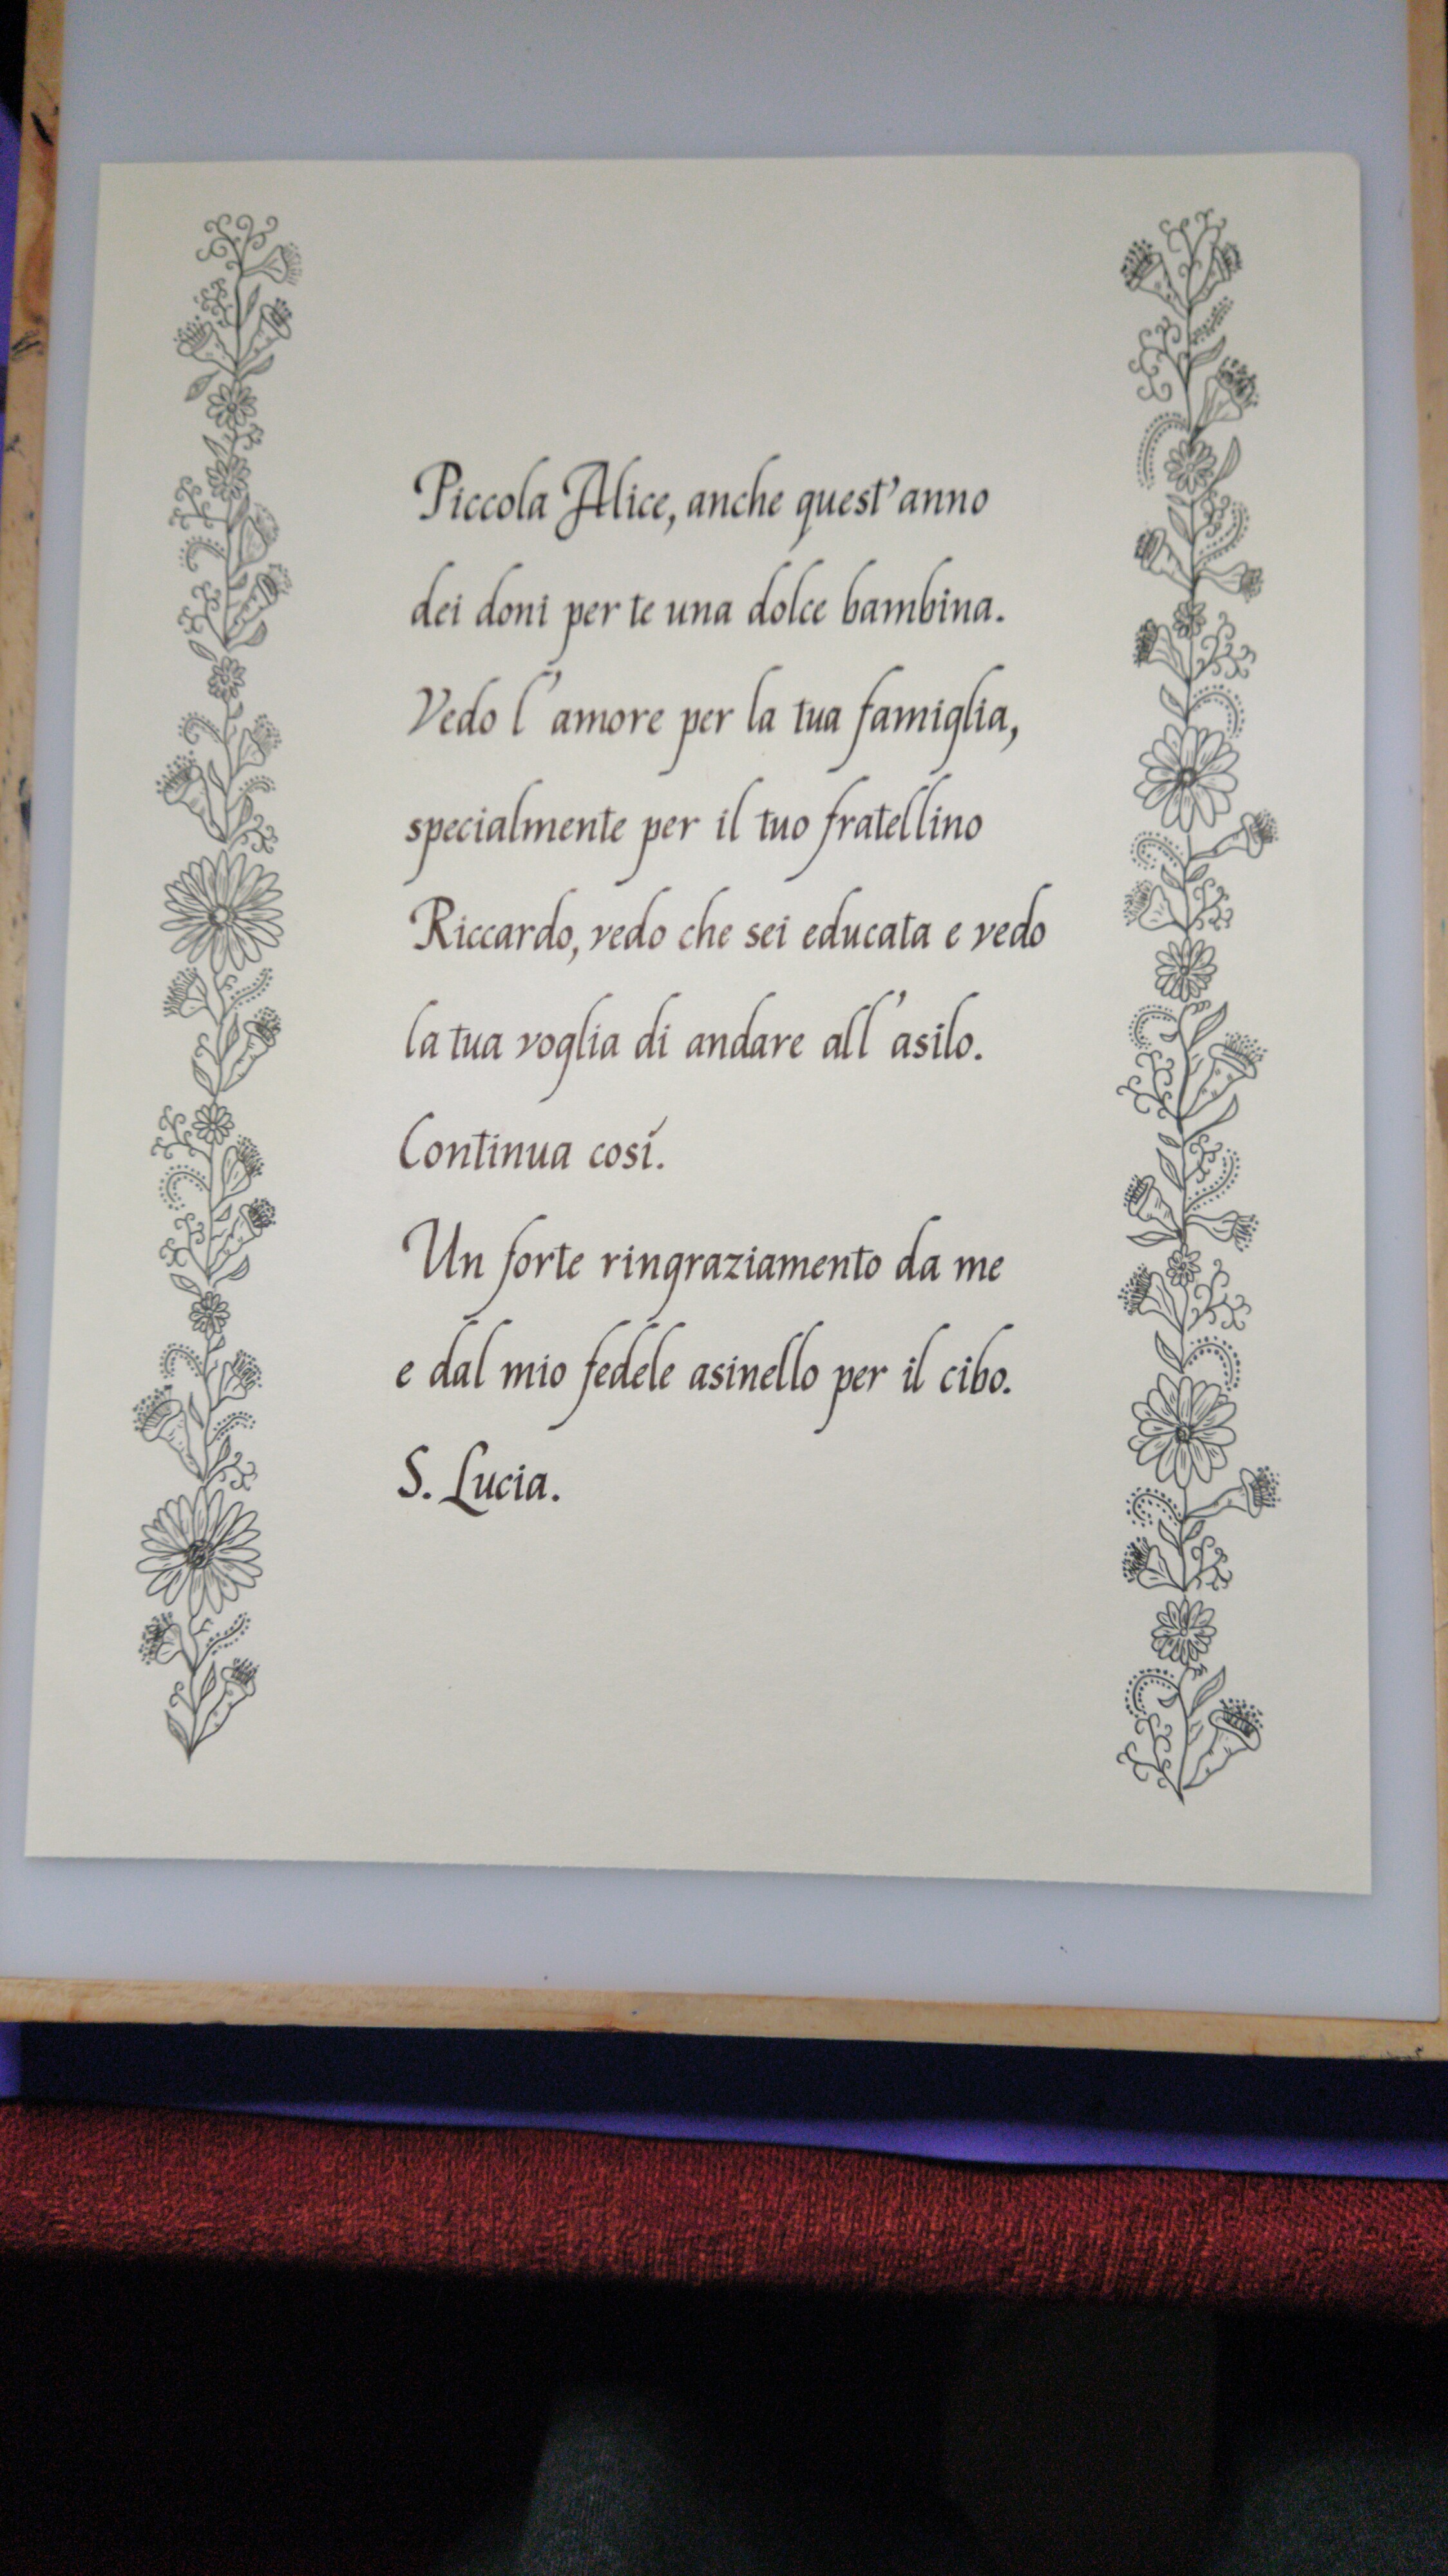 Piccola Alice, anche quest'anno
dei doni per te una dolce bambina.
Vedo l'amore per la tua famiglia,
specialmente per il tuo fratellino
Riccardo, vedo che sei educata e vedo
la tua voglia di andare all'asilo.
Continua cosí.
Un forte ringraziamento da me
e dal mio fedele asinello per il cibo.
S. Lucia.